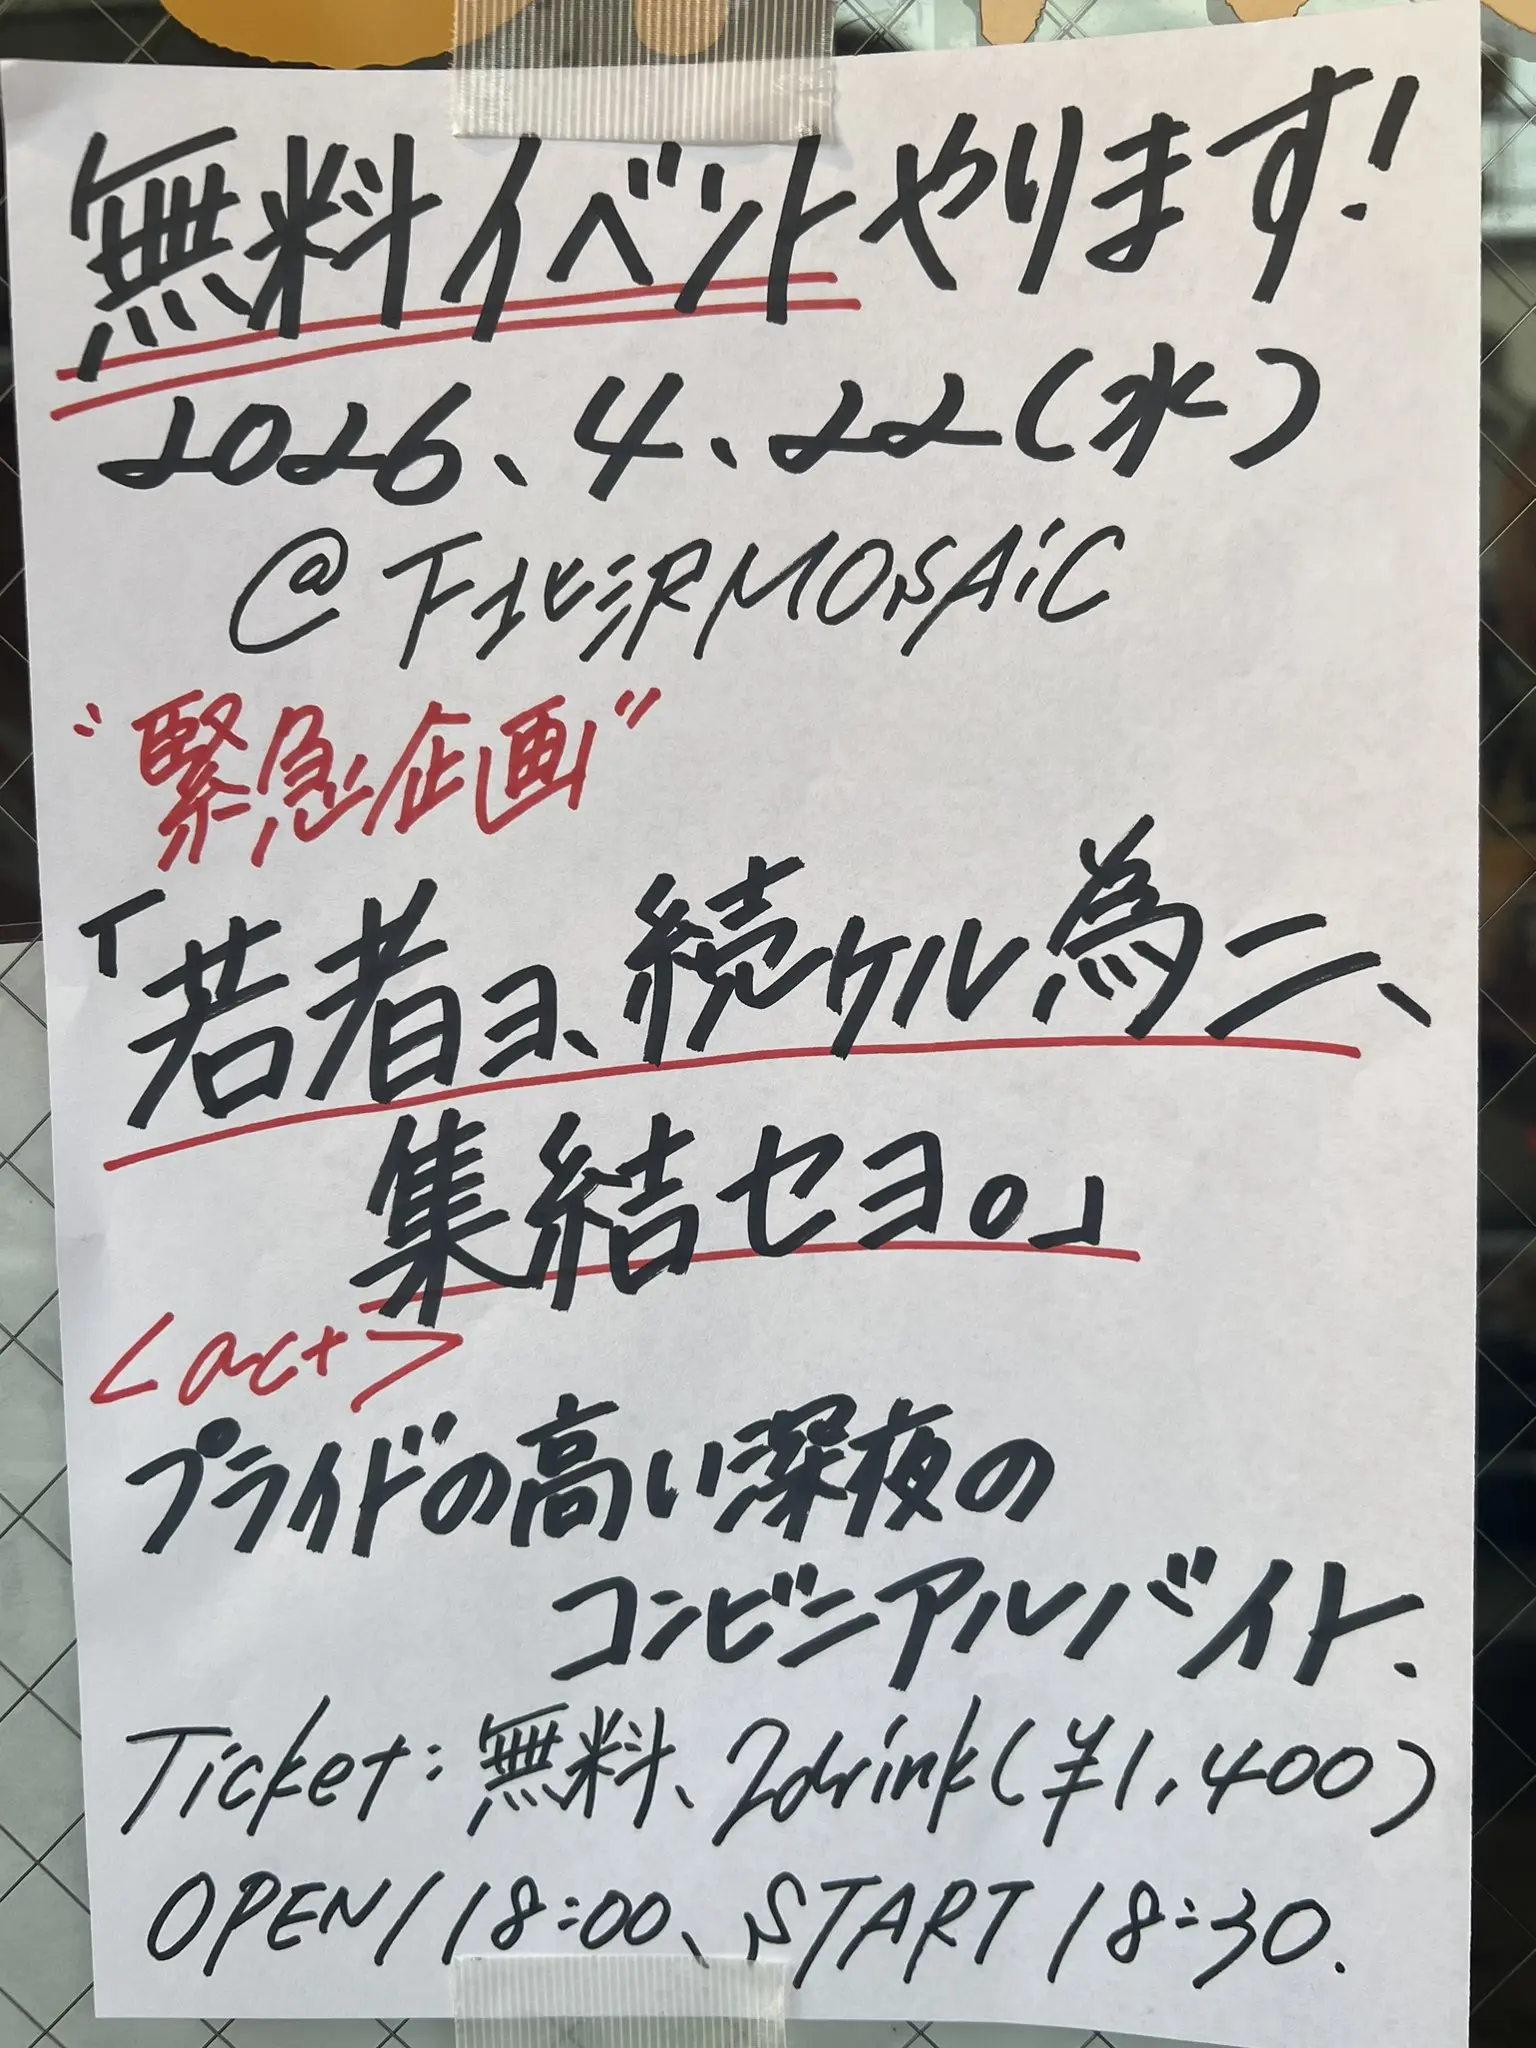 無料イベントやります!
2026、4、22(水)
@下北沢MOSAiC
"緊急企画"
「若者ヨ、続ケル為ニ、
集結セヨ。」
<act>
プライドの高い深夜の
コンビニアルバイト.
Ticket:無料、2drink(¥1,400)
OPEN/18:00、START/8:30.